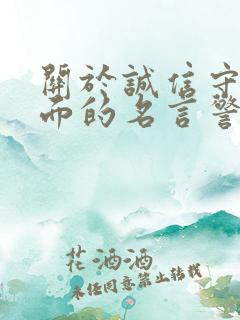 關於誠信守
而的名言警
花酒酒
未经同意禁止转载